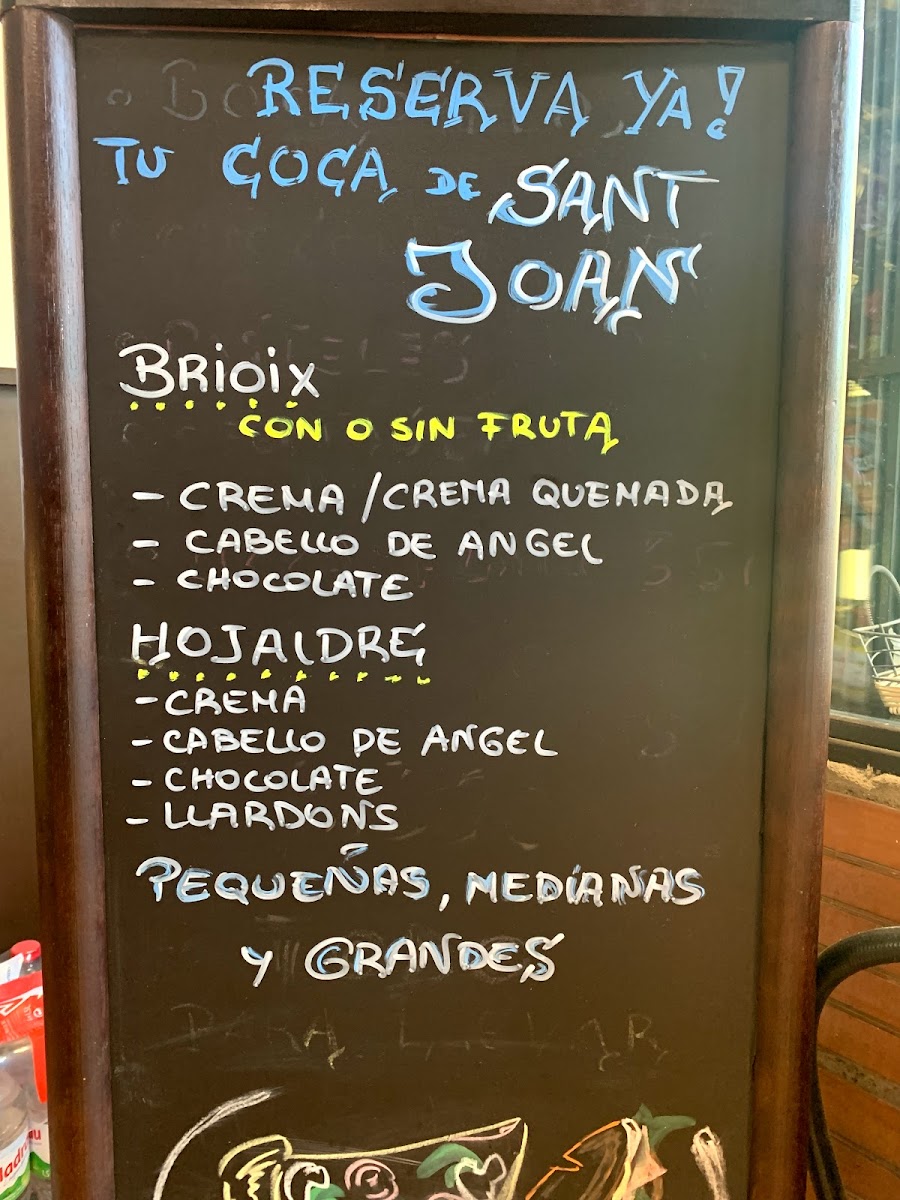 RESERVA YA!
TU COCA DE SANT
JOAN
BRIOIX
CON O SIN FRUTA
- CREMA / CREMA QUEMADA
- CABELLO DE ANGEL
- CHOCOLATE
HOJALDRE
- CREMA
- CABELLO DE ANGEL
- CHOCOLATE
- LLARDONS
PEQUEÑAS, MEDIANAS
Y GRANDES